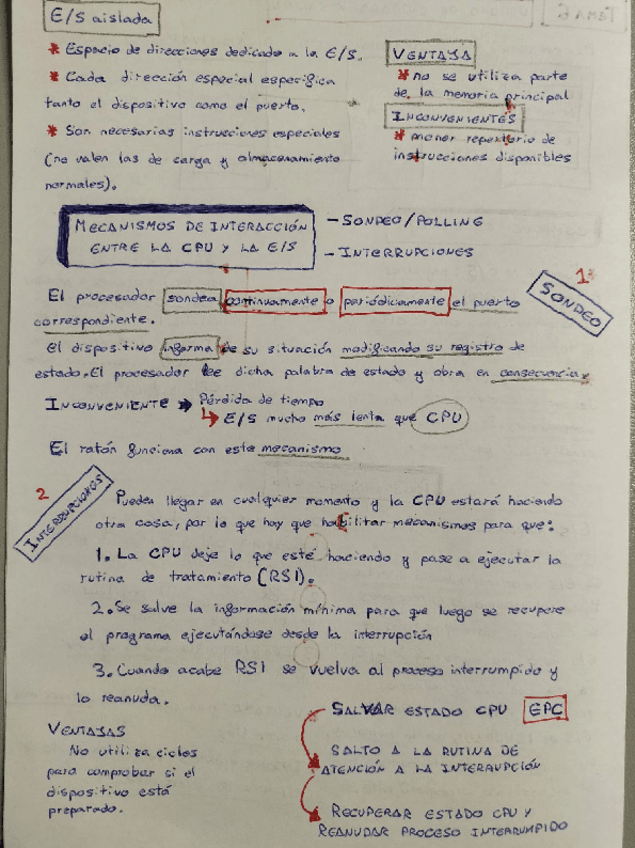 E/S aislada
* Espacio de direcciones dedicado a la E/S.
* Cada dirección especial especifica
tanto el dispositivo como el puerto.
* Son necesarias instrucciones especiales
(no valen las de carga y almacenamiento
normales).
VENTAJA
* no se utiliza parte
de la memoria principal
INCONVENIENTES
* menor repertorio de
instrucciones disponibles
MECANISMOS DE INTERACCIÓN
ENTRE LA CPU Y LA E/S
- SONDEO/POLLING
- INTERRUPCIONES
1
SONDEO
El procesador sondea continuamente o periódicamente el puerto
correspondiente.
El dispositivo informa de su situación modificando su registro de
estado. El procesador lee dicha palabra de estado y obra en consecuencia
INCONVENIENTE → Pérdida de tiempo
↳ E/S mucho más lenta que CPU
El ratón funciona con este mecanismo
2
INTERRUPCIONES
Pueden llegar en cualquier momento y la CPU estará haciendo
otra cosa, por lo que hay que habilitar mecanismos para que:
1. La CPU deje lo que esté haciendo y pase a ejecutar la
rutina de tratamiento (RSI).
2. Se salve la información mínima para que luego se recupere
el programa ejecutándose desde la interrupción
3. Cuando acabe RSI se vuelva al proceso interrumpido y
lo reanuda.
VENTAJAS
No utiliza ciclos
para comprobar si el
dispositivo está
preparado.
SALVAR ESTADO CPU EPC
SALTO A LA RUTINA DE
ATENCIÓN A LA INTERRUPCIÓN
RECUPERAR ESTADO CPU Y
REANUDAR PROCESO INTERRUMPIDO